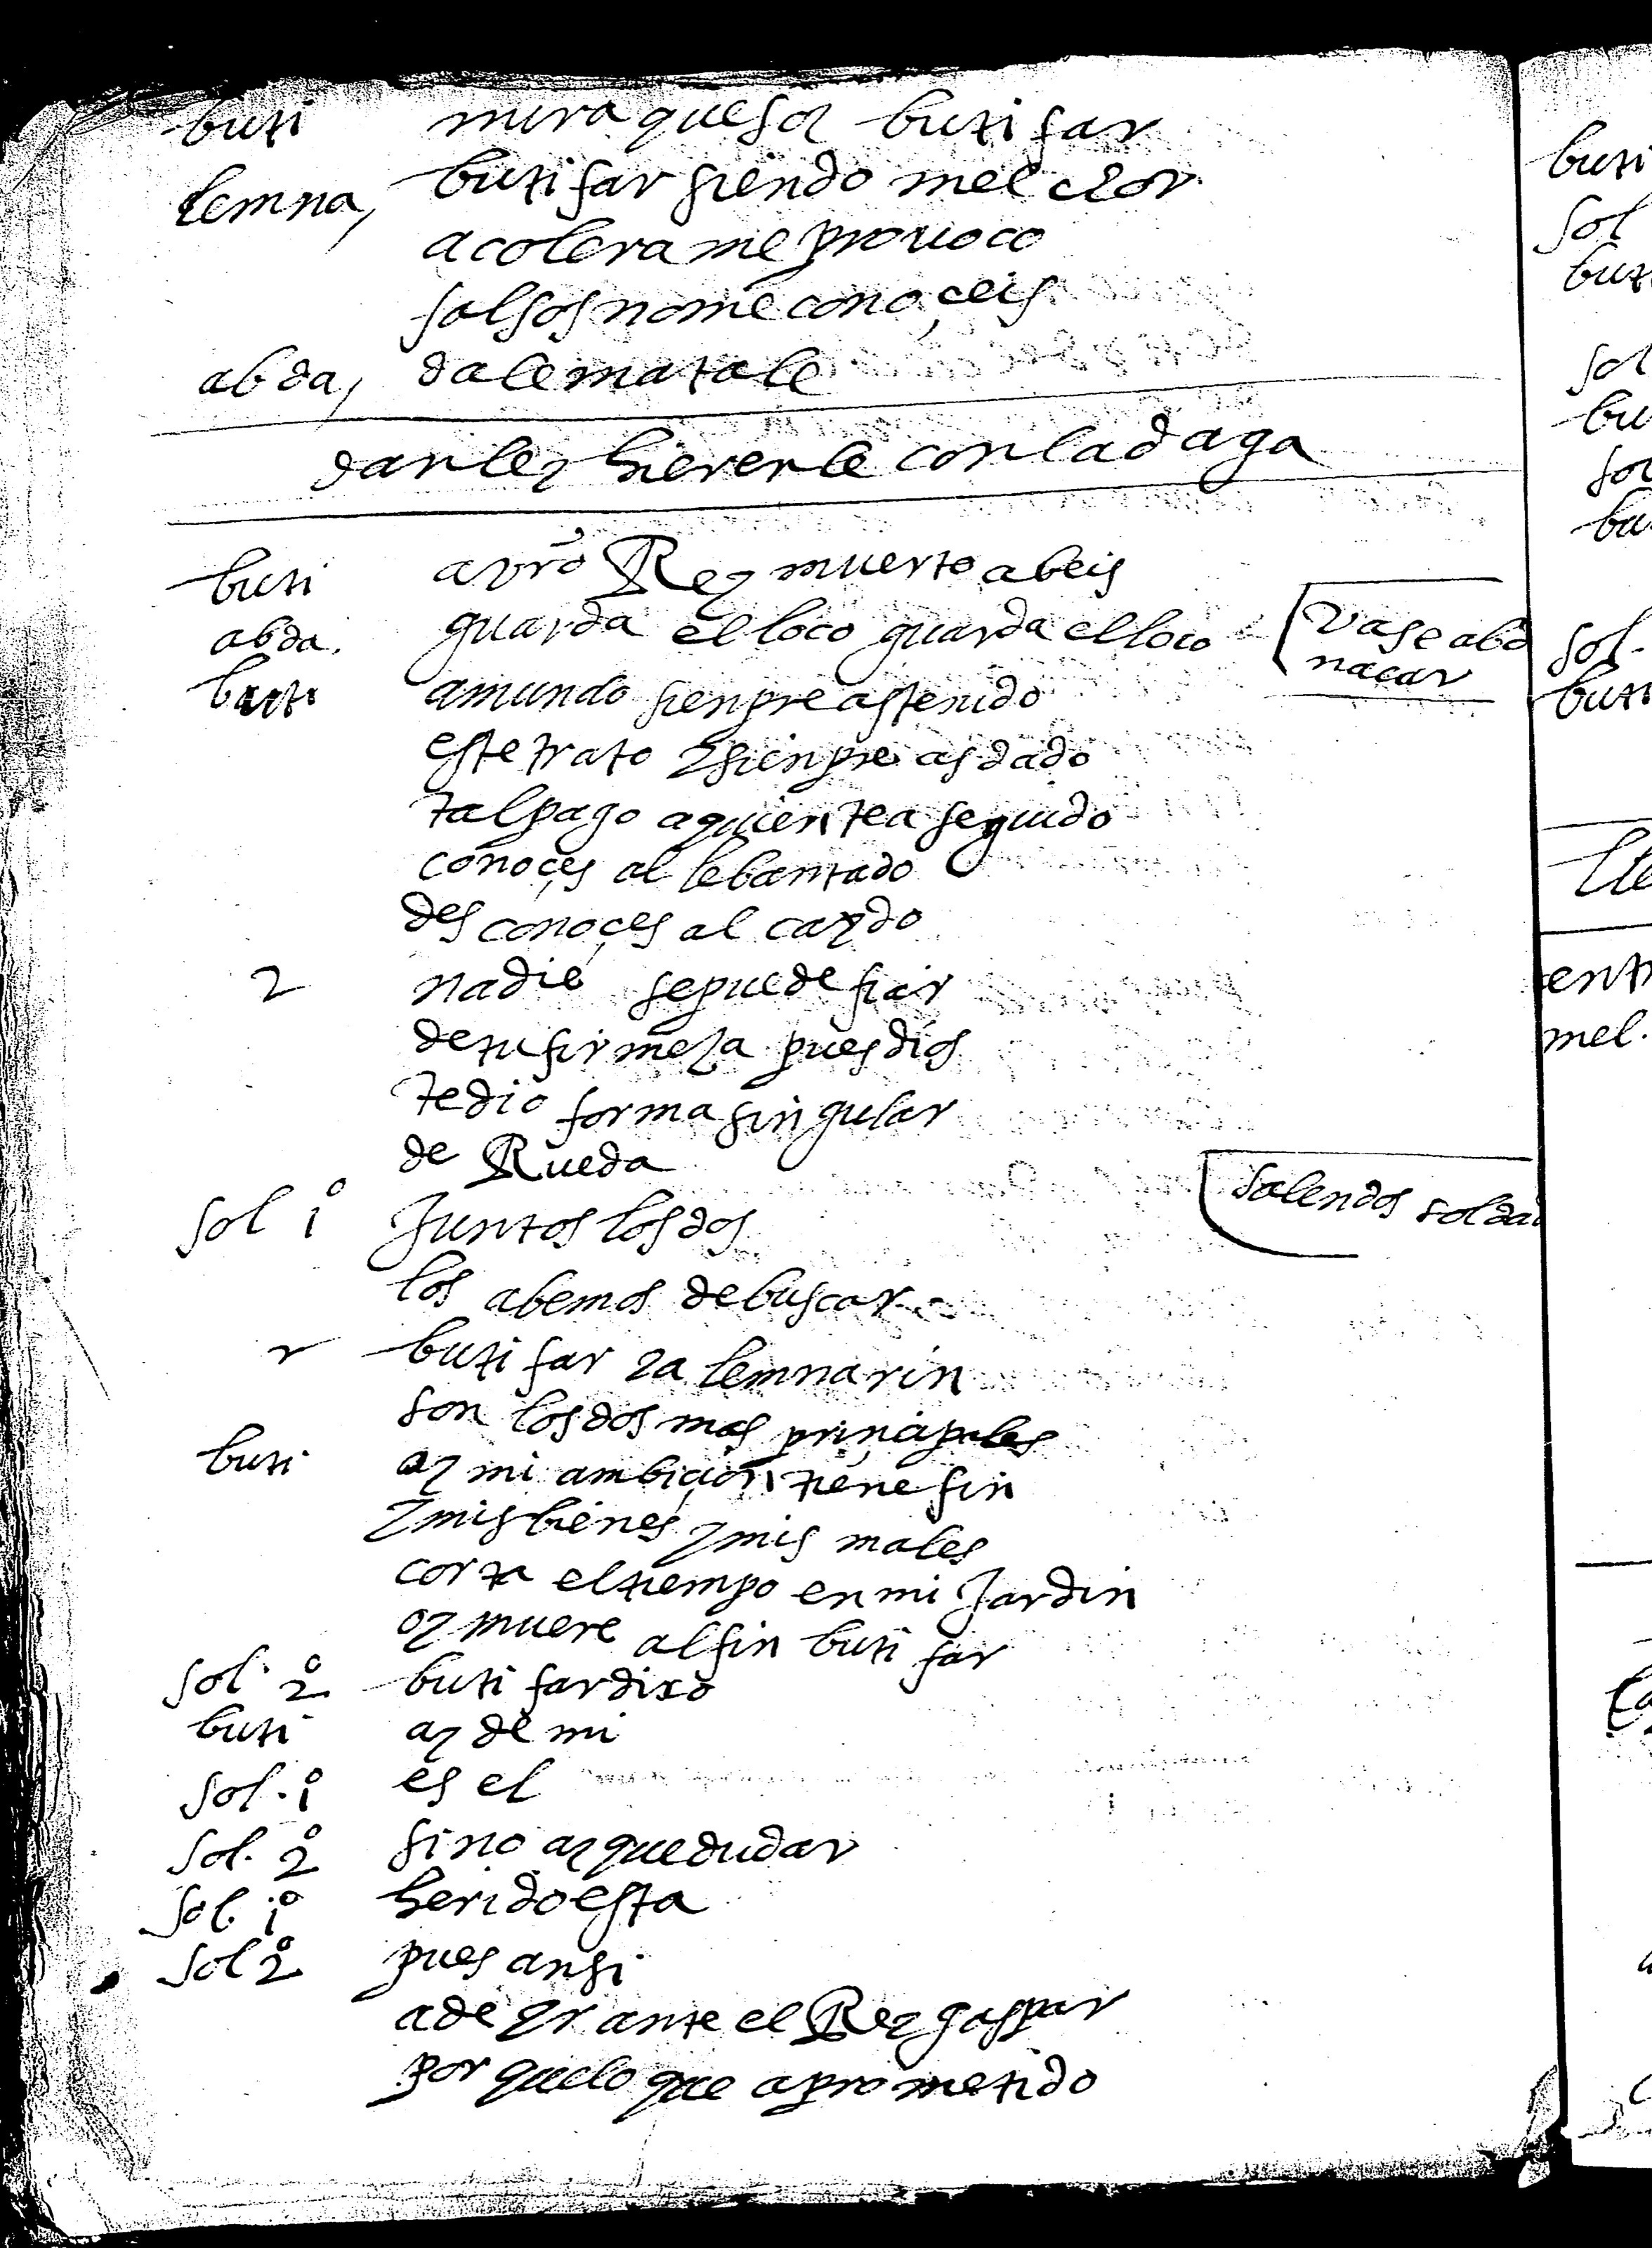 buti mira que soy butifar
lemna, butifar siendo melchor
a colera me prouoco
falsos no me conoçeis
abda, dale matale
danle y hierenle con la daga
buti a vrõ Rey muerto abeis
abda. guarda el loco guarda el loco
vase abd
naçar
buti a mundo sienpre as tenido
este trato y sienpre as dado
tal pago a quien te a seguido
conoçes al lebantado
desconoçes al caydo
2 nadie se puede fiar
de tu firmeza pues dios
te dio forma singular
de Rueda
salen dos soldad
sol 1º Juntos los dos
los abemos de buscar
r butifar y a lemnarin
son los dos mas prinçipales
buti oy mi ambiçion tiene fin
y mis bienes y mis males
corta el tiempo en mi Jardin
oy muere al fin butifar
sol. 2º butifar dixo
buti ay de mi
sol. 1º es el
sol. 2º si no ay que dudar
sol. 1º herido esta
sol 2º pues ansi
a de yr ante el Rey gaspar
por que lo que a prometido
buti
sol
buti
sol
bu
sol
bu
sol.
buti
lle
entr
mel.